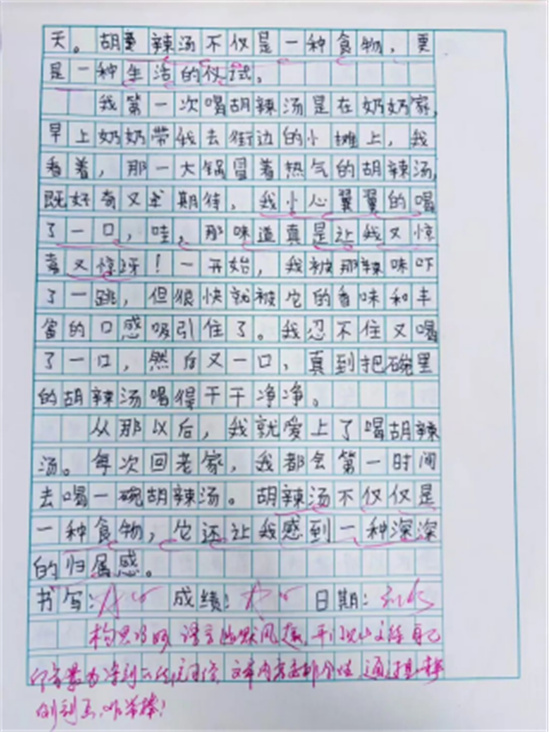 天。胡辣汤不仅是一种食物，更
是一种生活的仪式，
我第一次喝胡辣汤是在奶奶家，
早上奶奶带我去街边的小摊上，我
看着，那一大锅冒着热气的胡辣汤，
既好奇又期待，我小心翼翼的喝
了一口，哇，那味道真是让我又惊
喜又惊讶！一开始，我被那辣味吓
了一跳，但很快就被它的香味和丰
富的口感吸引住了。我忍不住又喝
了一口，然后又一口，真到把碗里
的胡辣汤喝得干干净净。
从那以后，我就爱上了喝胡辣
汤。每次回老家，我都会第一时间
去喝一碗胡辣汤。胡辣汤不仅仅是
一种食物，它还让我感到一种深深
的归属感。
书写：A 成绩： 日期：
构思巧妙，语言幽默风趣，开门见山